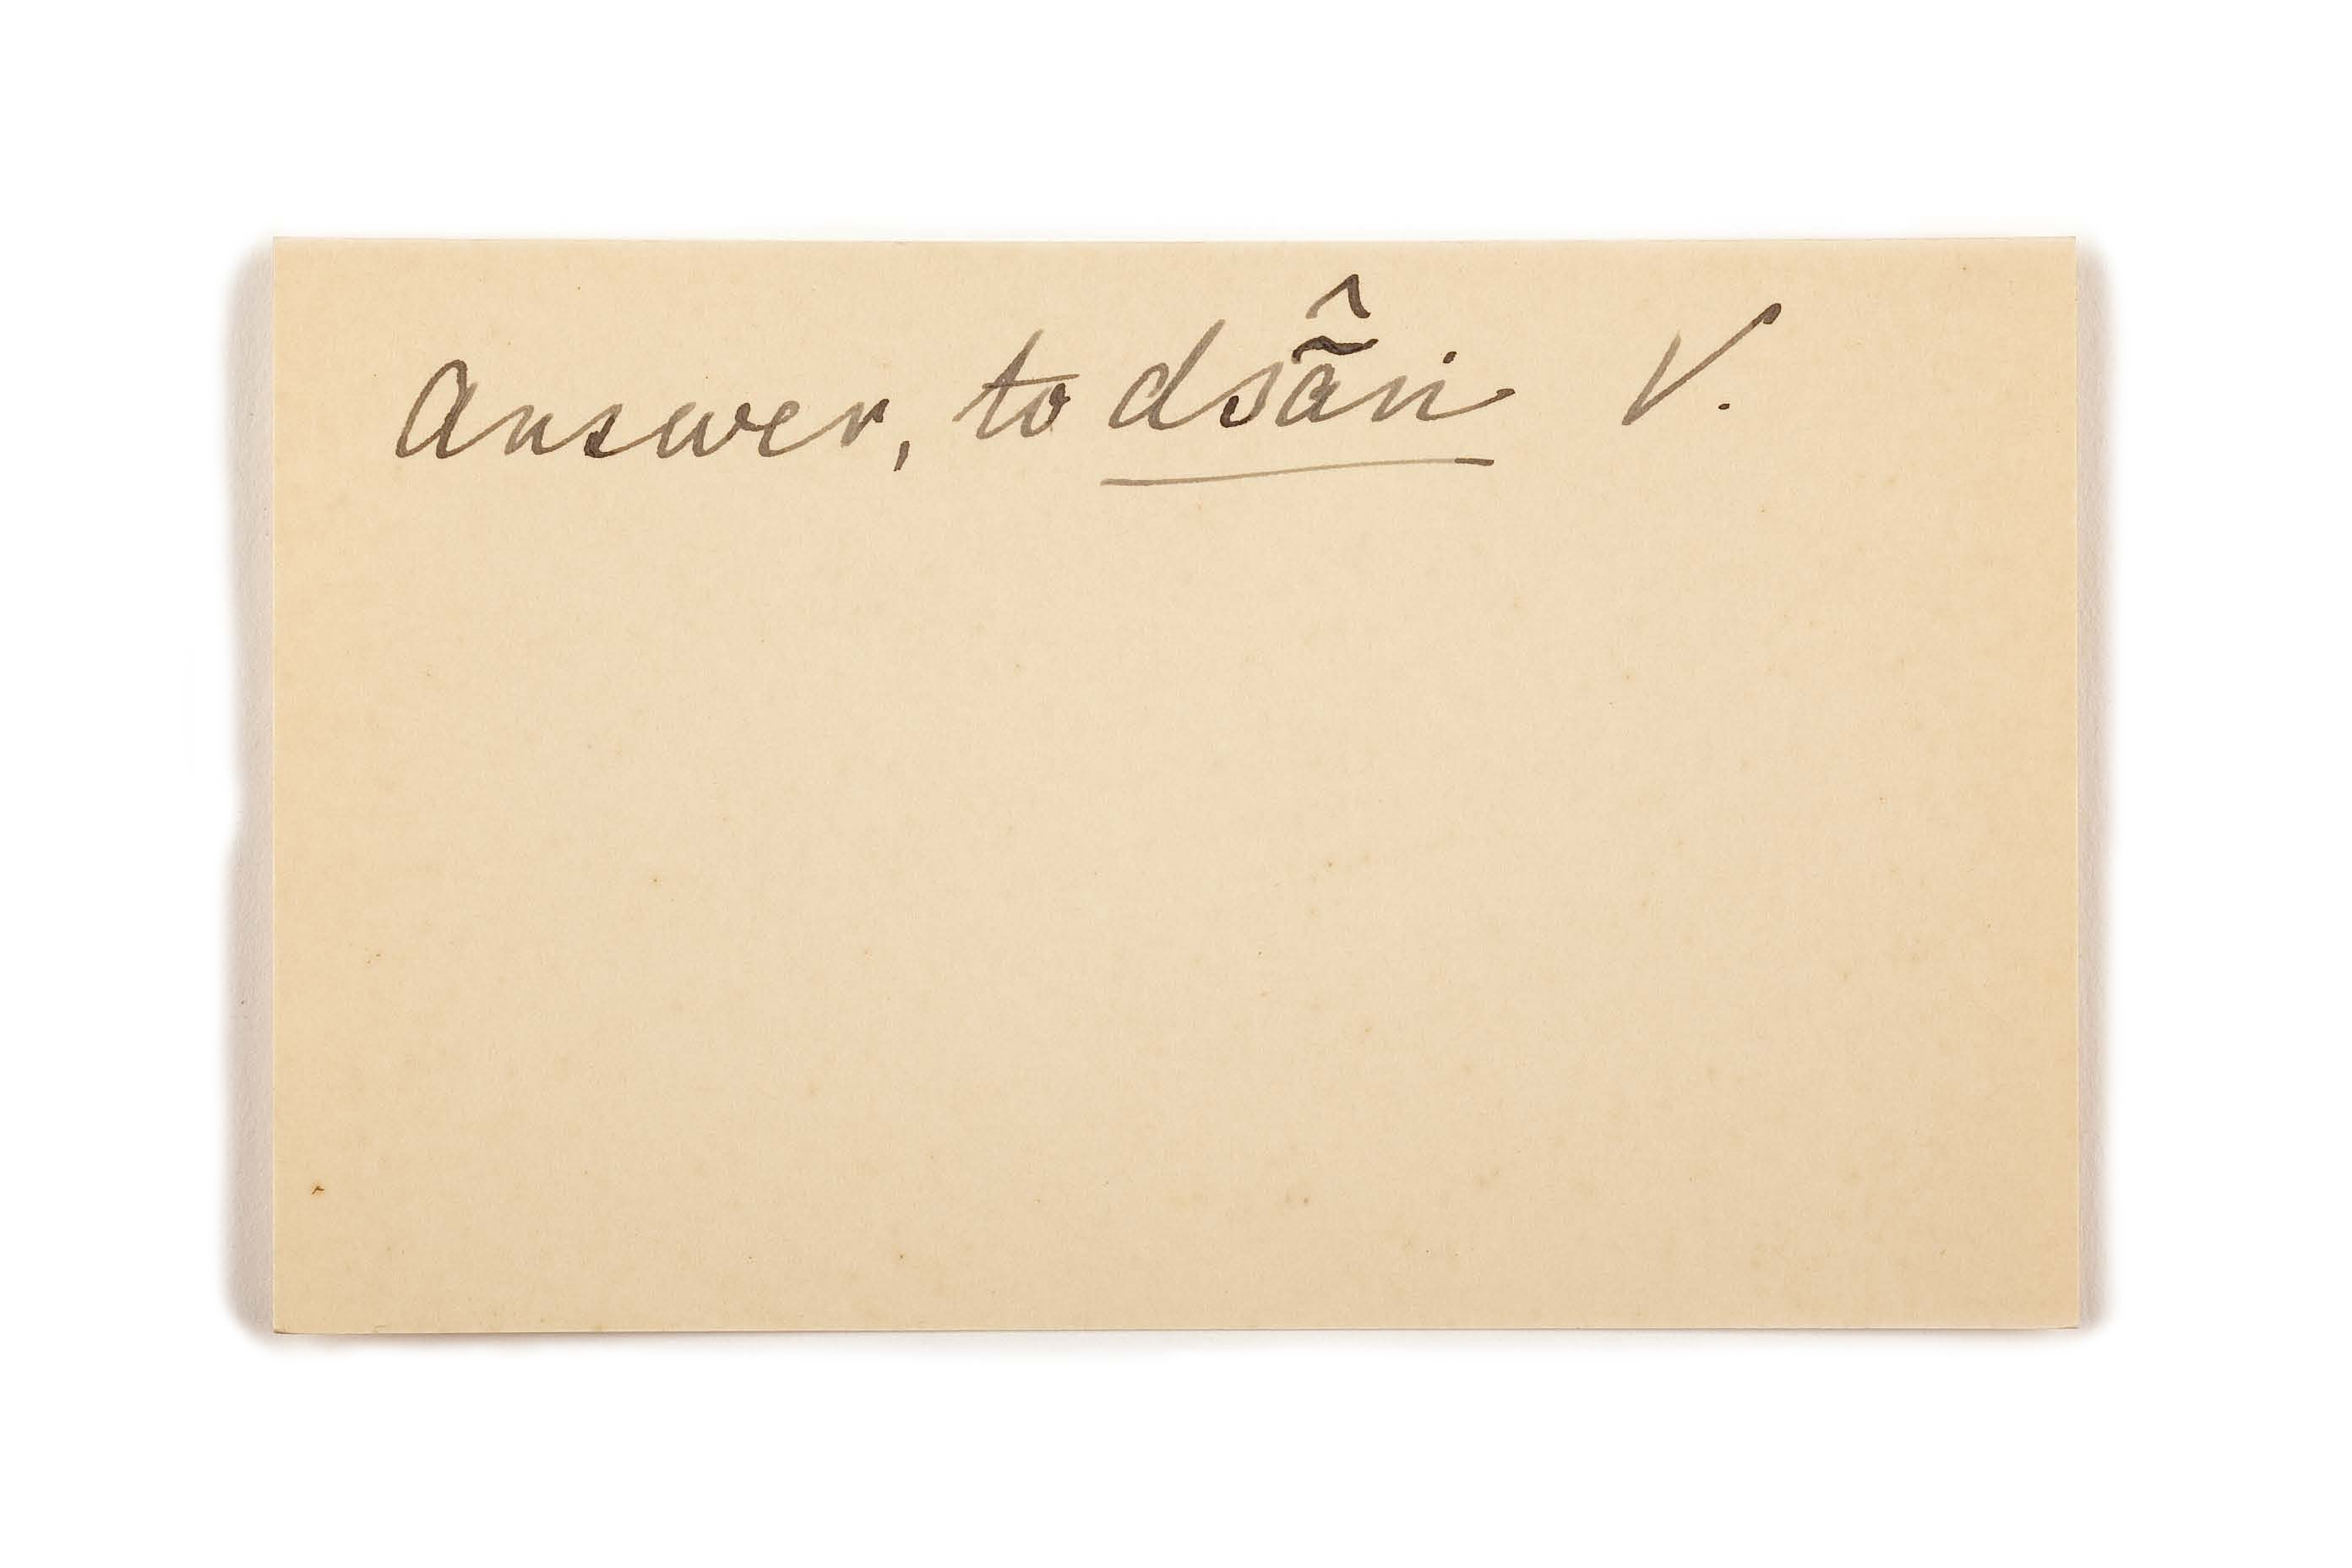 Answer, to dsã̂ni V.